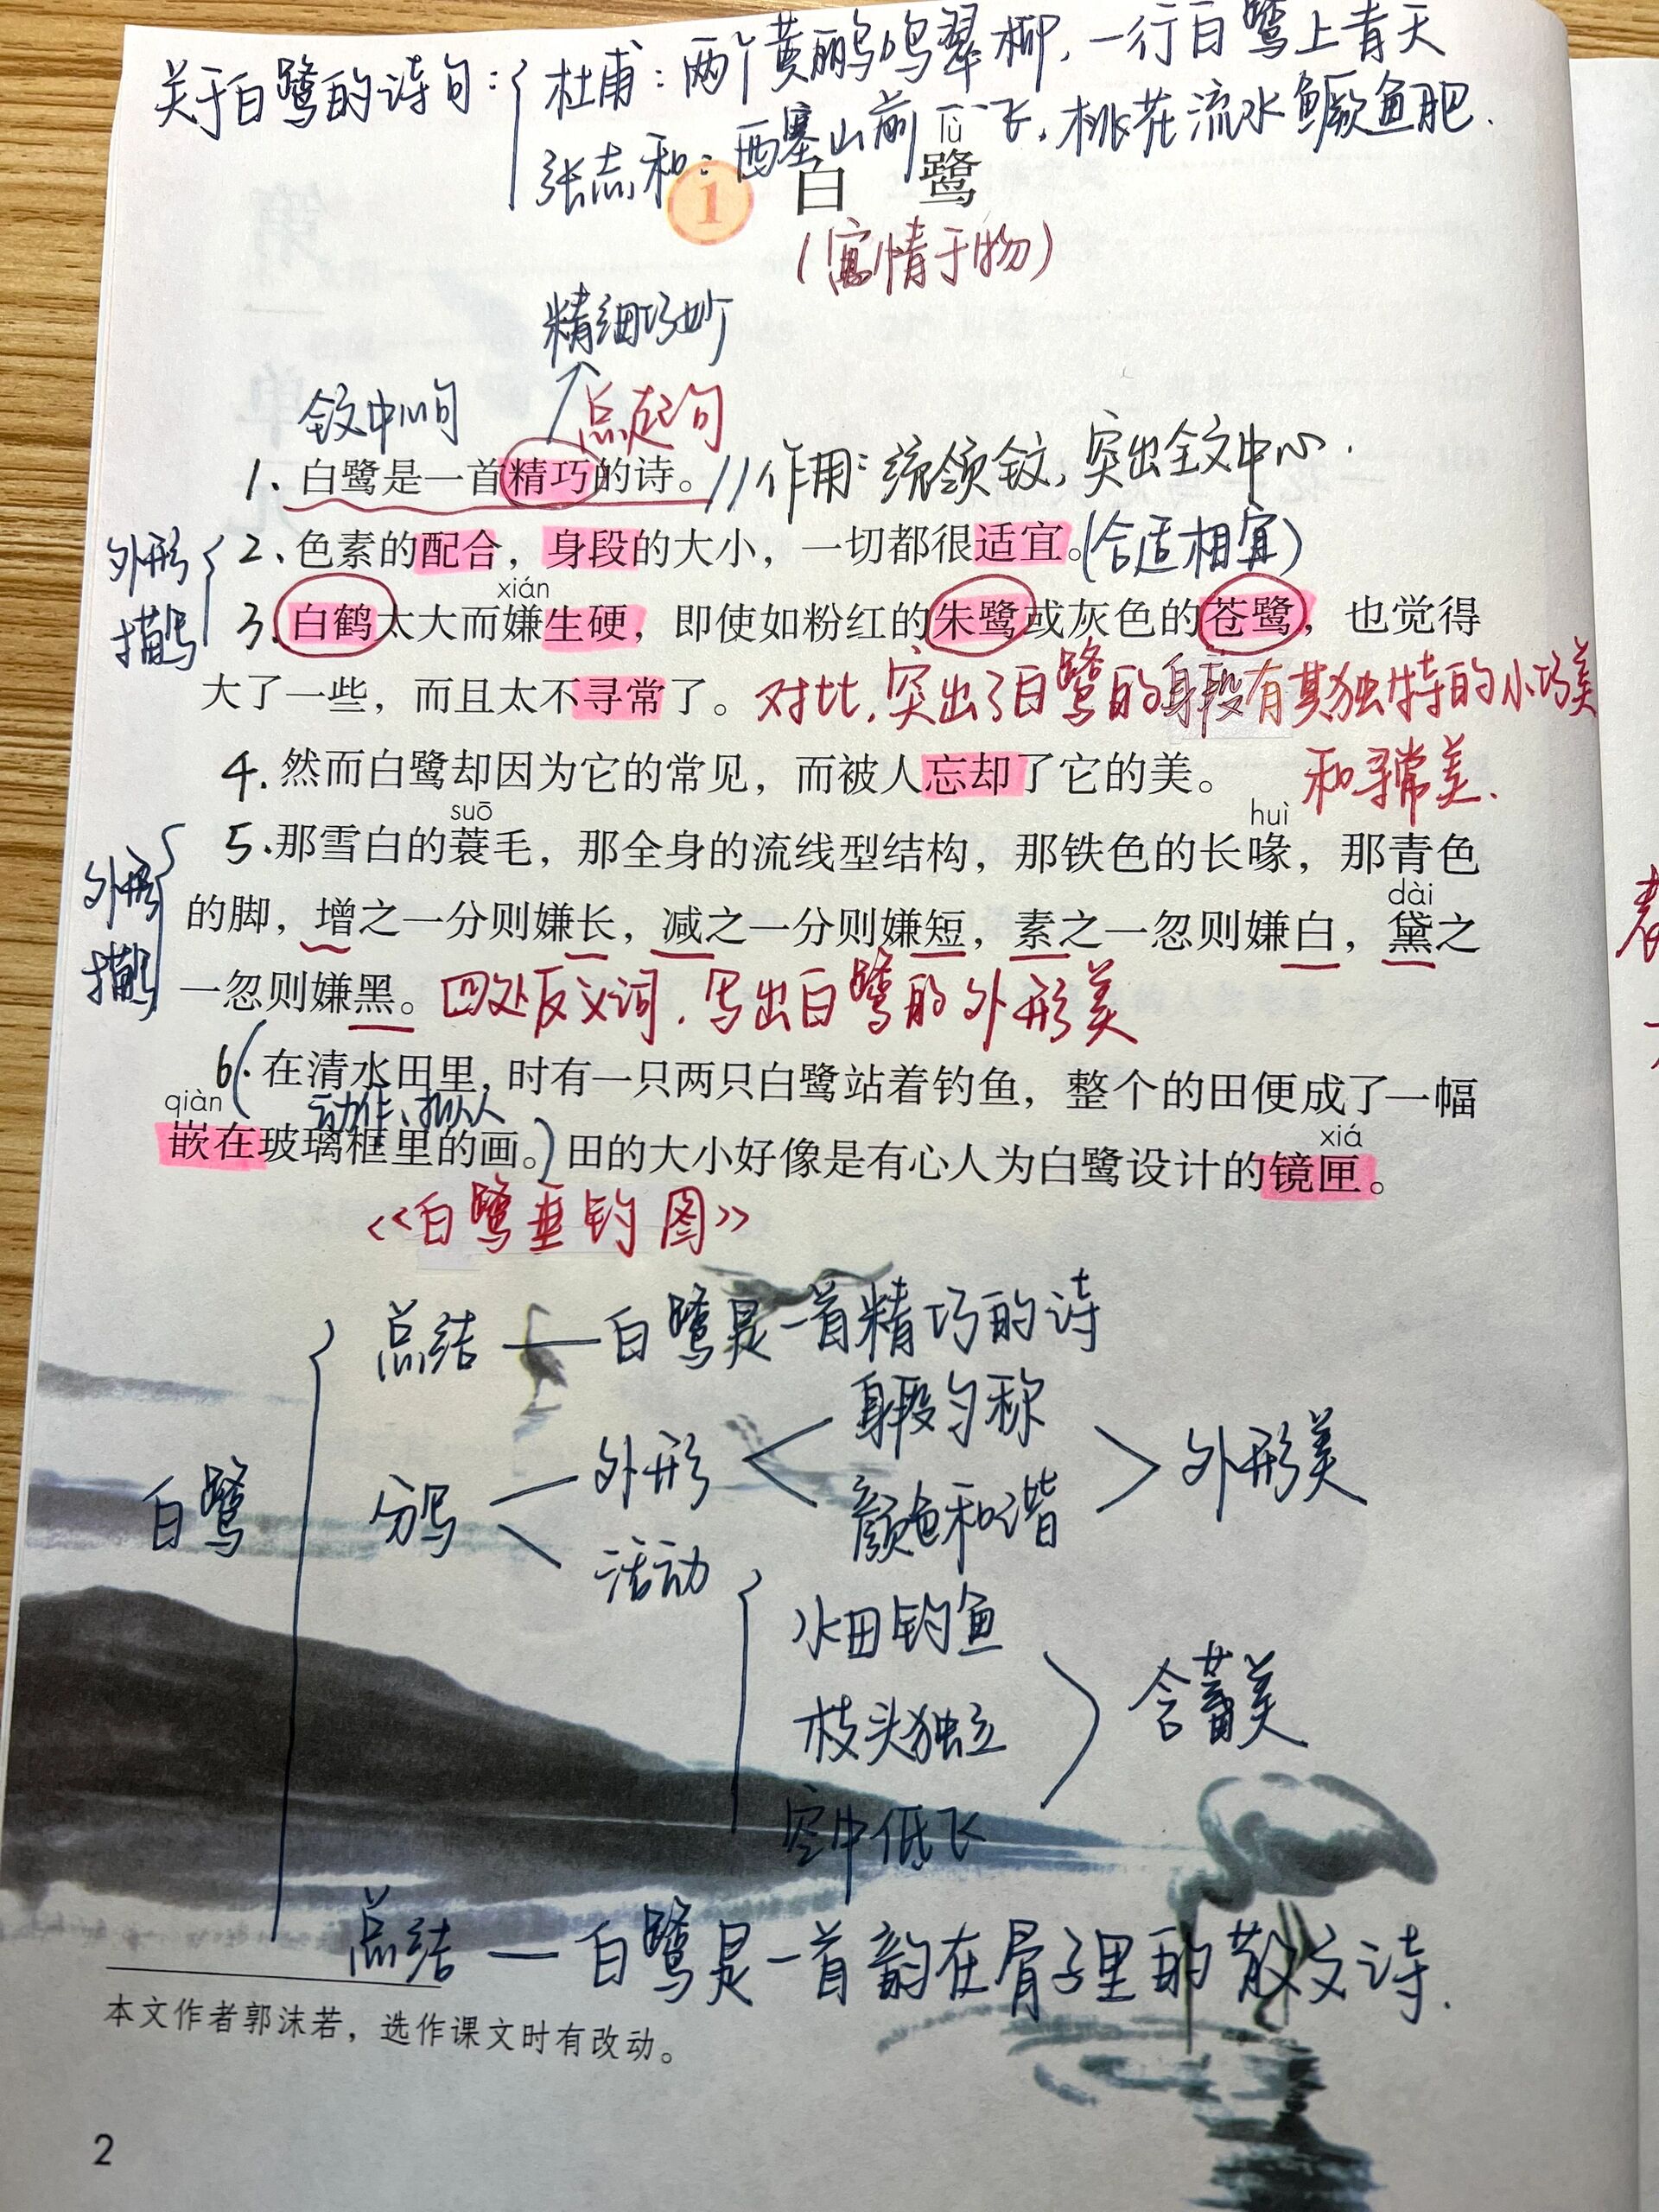 关于白鹭的诗句：
杜甫：两个黄鹂鸣翠柳，一行白鹭上青天
张志和：西塞山前飞，桃花流水鳜鱼肥.
lù
1 白鹭
（寓情于物）
精细巧妙
全文中心句 总起句
1、白鹭是一首精巧的诗。// 作用：统领全文，突出全文中心.
外形描写
2、色素的配合，身段的大小，一切都很适宜。（合适相宜）
xián
3、白鹤太大而嫌生硬，即使如粉红的朱鹭或灰色的苍鹭，也觉得
大了一些，而且太不寻常了。对比，突出了白鹭的身段有其独特的小巧美
4.然而白鹭却因为它的常见，而被人忘却了它的美。 和寻常美.
suō huì
外形描写
5.那雪白的蓑毛，那全身的流线型结构，那铁色的长喙，那青色
dài
的脚，增之一分则嫌长，减之一分则嫌短，素之一忽则嫌白，黛之
一忽则嫌黑。四处反义词，写出白鹭的外形美
6.（在清水田里，时有一只两只白鹭站着钓鱼，整个的田便成了一幅
qiàn 动作、拟人 xiá
嵌在玻璃框里的画。）田的大小好像是有心人为白鹭设计的镜匣。
《白鹭垂钓图》
白鹭
总结——白鹭是一首精巧的诗
分写
外形
身段匀称
颜色和谐
外形美
活动
水田钓鱼
枝头独立
空中低飞
含蓄美
总结—白鹭是一首韵在骨子里的散文诗.
本文作者郭沫若，选作课文时有改动。
2